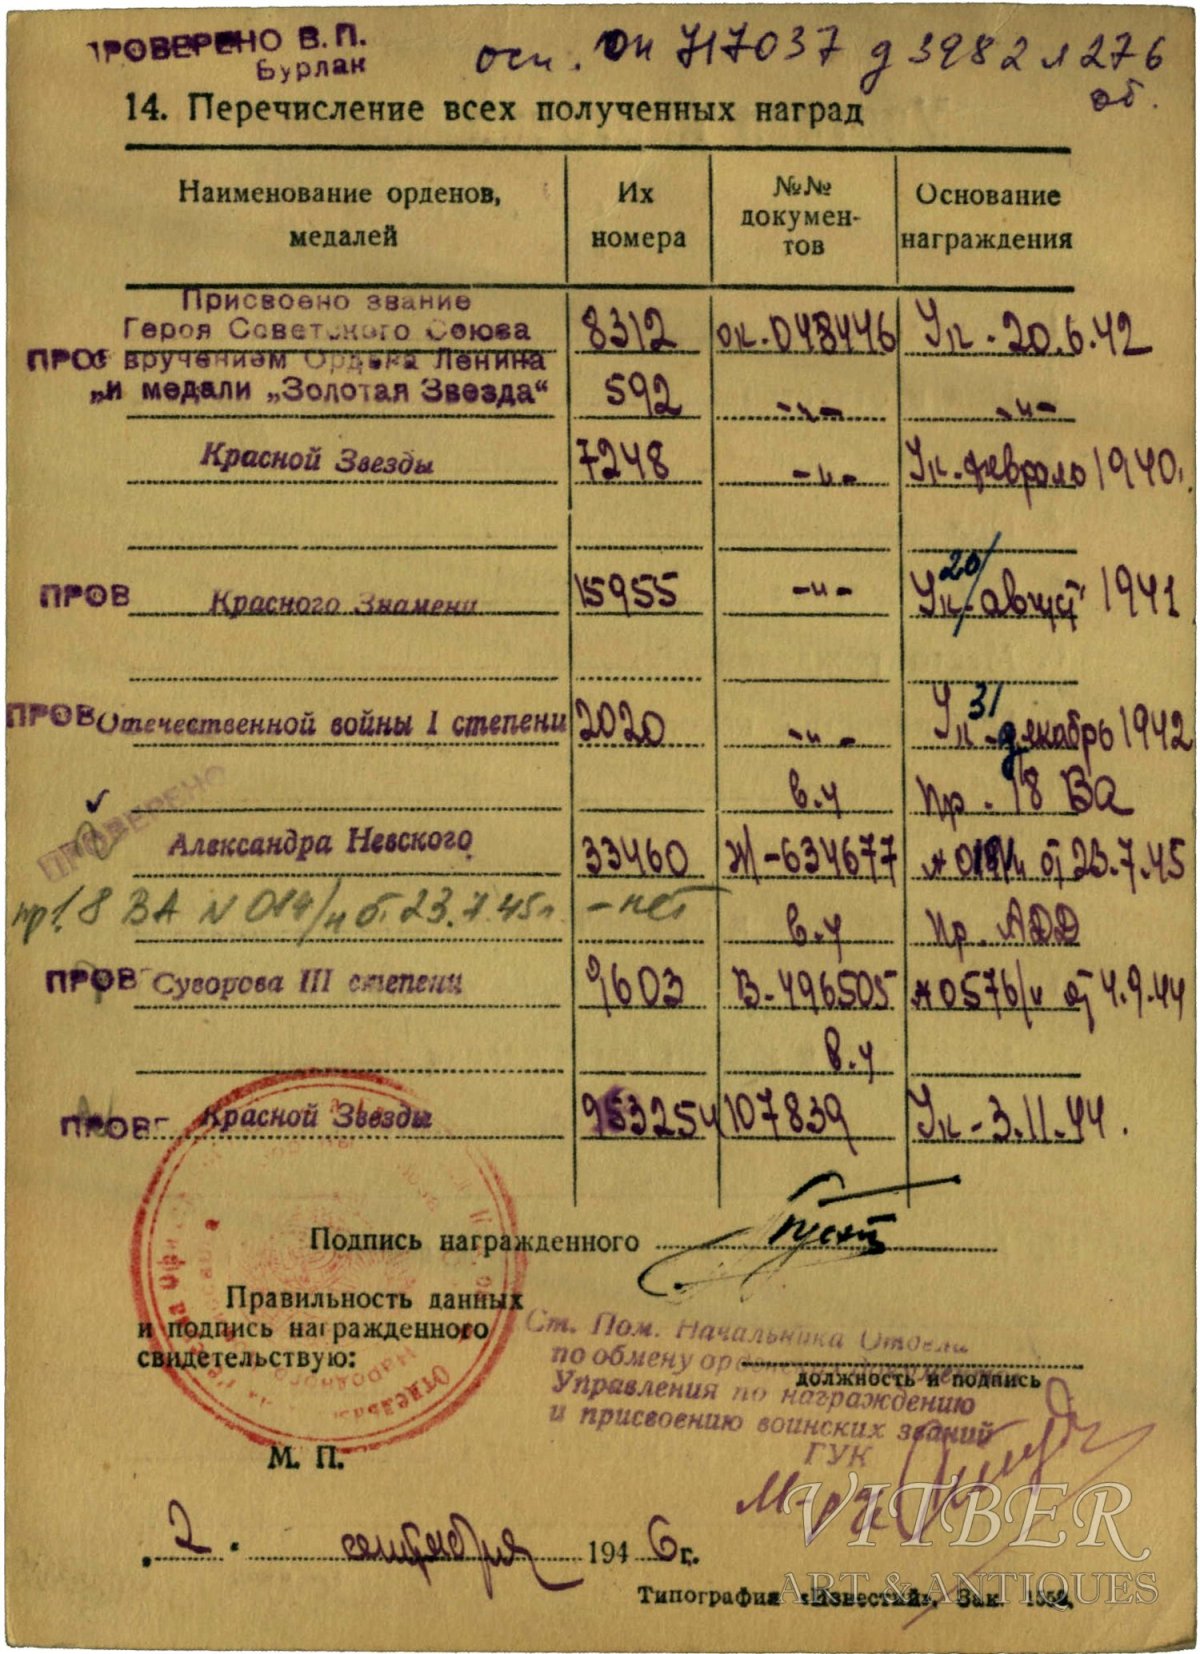 ПРОВЕРЕНО В. П.
Бурлак
осн. Оп 717037 д 3982 л 276
об.
14. Перечисление всех полученных наград
Наименование орденов, медалей
Их номера
№№ докумен-тов
Основание награждения
Присвоено звание
Героя Советского Союза 8312 ок.048446 Ук - 20.6.42
ПРОВ с вручением Ордена Ленина
„и медали „Золотая Звезда“ 592 -„- -„-
Красной Звезды 7248 -„- Ук - февраль 1940.
20/
ПРОВ Красного Знамени 15955 -„- Ук - август 1941
31
ПРОВ Отечественной войны I степени 2020 -„- Ук - декабрь 1942
в.у Пр. 18 ВА
ПРОВЕРЕНО
Александра Невского 33460 Ж-634677 №019/н от 23.7.45
пр. 18 ВА N 019/н от 23.7.45г. - нет
в.у Пр. АДД
ПРОВ Суворова III степени 9603 В-496505 №0576/н от 4.9.44
в.у
ПРОВ Красной Звезды 953254 107839 Ук - 3.11.44.
Подпись награжденного
Правильность данных
и подпись награжденного
свидетельствую:
Ст. Пом. Начальника Отдела
по обмену
должность и подпись
Управления по награждению
и присвоению воинских званий
ГУК
М. П.
М-р
2. сентября 1946 г.
Типография «Известий». Зак. 1552.
VITBER
ART & ANTIQUES